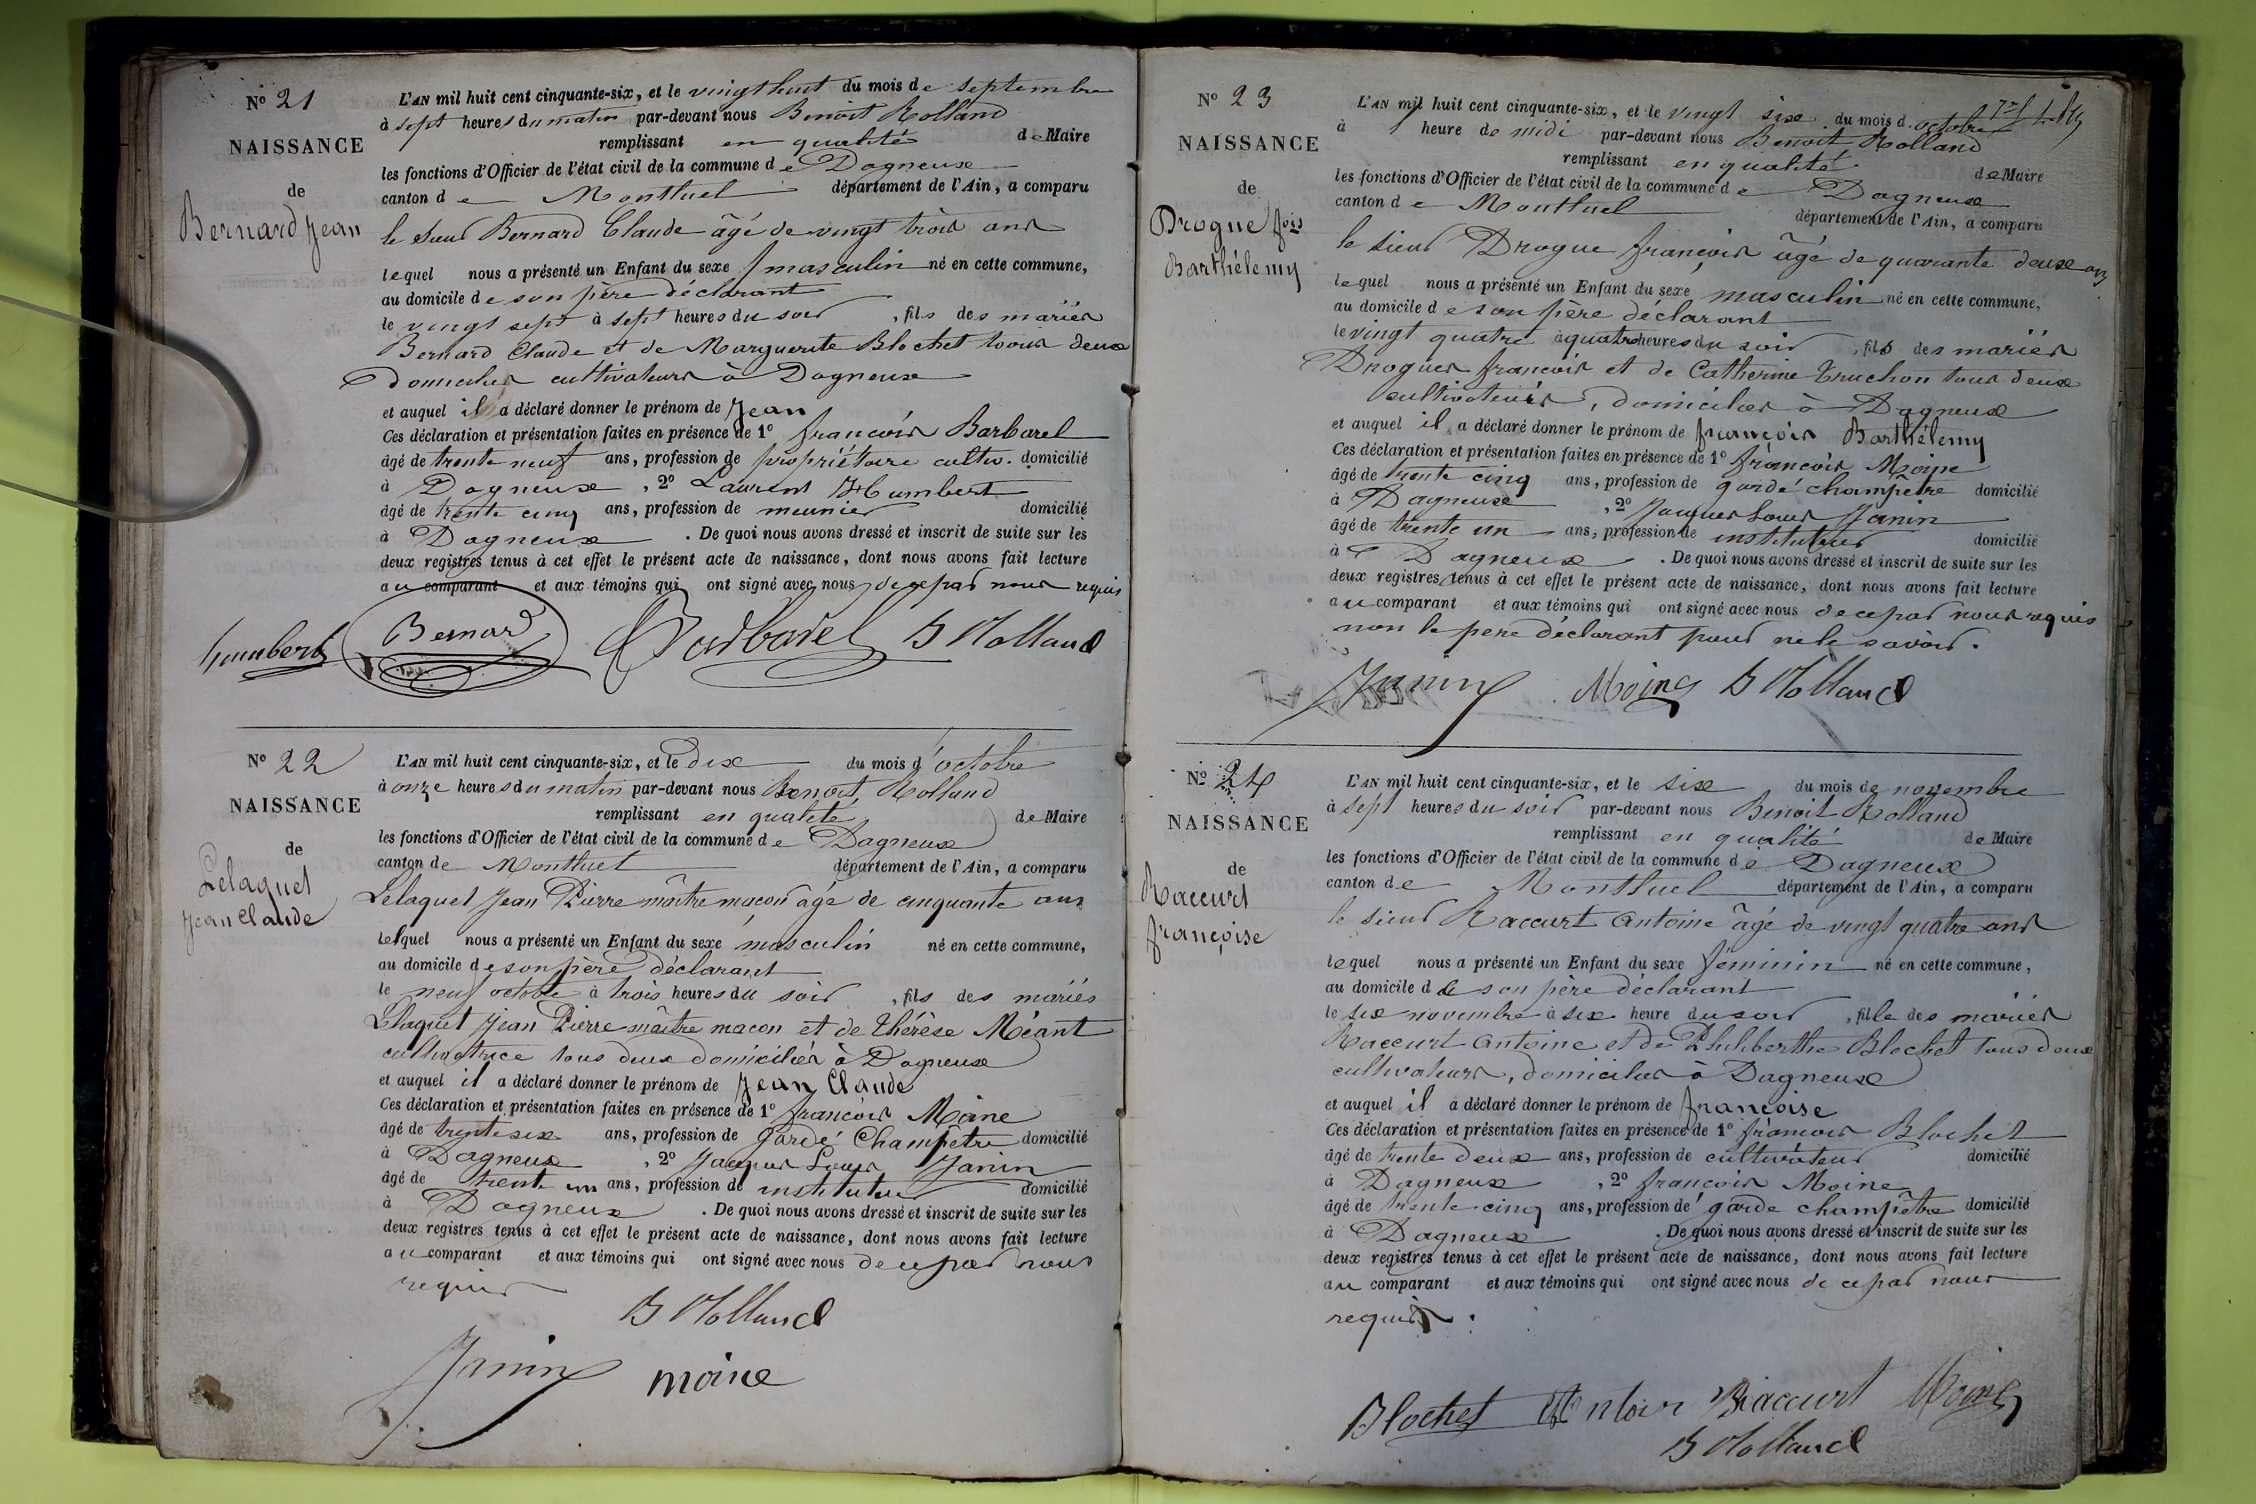 N° 21
NAISSANCE
de
Bernard Jean
L'AN mil huit cent cinquante-six, et le vingt huit du mois de septembre
à sept heures du matin par-devant nous Benoit Rolland
remplissant en qualité de Maire
les fonctions d'Officier de l'état civil de la commune de Dagneux
canton de Montluel département de l'Ain, a comparu
le sieur Bernard Claude âgé de vingt trois ans
lequel nous a présenté un Enfant du sexe masculin né en cette commune,
au domicile de son père déclarant
le vingt sept à sept heures du soir, fils des mariés
Bernard Claude et de Marguerite Blochet tous deux
domiciliés cultivateurs à Dagneux
et auquel il a déclaré donner le prénom de Jean
Ces déclaration et présentation faites en présence de 1° françois Barbarel
âgé de trente neuf ans, profession de propriétaire cultiv. domicilié
à Dagneux, 2° Laurent Humbert
âgé de trente cinq ans, profession de meunier domicilié
à Dagneux. De quoi nous avons dressé et inscrit de suite sur les
deux registres tenus à cet effet le présent acte de naissance, dont nous avons fait lecture
au comparant et aux témoins qui ont signé avec nous de ce par nous requis
humbert Bernard Barbarel B Rolland
N° 22
NAISSANCE
de
Lelaquet
Jean Claude
L'AN mil huit cent cinquante-six, et le dix du mois d'octobre
à onze heures du matin par-devant nous Benoit Rolland
remplissant en qualité de Maire
les fonctions d'Officier de l'état civil de la commune de Dagneux
canton de Montluel département de l'Ain, a comparu
Lelaquet Jean Pierre maître maçon âgé de cinquante ans
lequel nous a présenté un Enfant du sexe masculin né en cette commune,
au domicile de son père déclarant
le neuf octobre à trois heures du soir, fils des mariés
Lelaquet Jean Pierre maître macon et de thérèse Méant
cultivatrice tous deux domiciliés à Dagneux
et auquel il a déclaré donner le prénom de Jean Claude
Ces déclaration et présentation faites en présence de 1° françois Moine
âgé de trente six ans, profession de garde Champêtre domicilié
à Dagneux, 2° Jacques Louis Janin
âgé de trente un ans, profession de instituteur domicilié
à Dagneux. De quoi nous avons dressé et inscrit de suite sur les
deux registres tenus à cet effet le présent acte de naissance, dont nous avons fait lecture
au comparant et aux témoins qui ont signé avec nous de ce par nous
requis
B Rolland
Janin moine
N° 23
NAISSANCE
de
Drogue fois
Barthélemy
L'AN mil huit cent cinquante-six, et le vingt six du mois d'octobre
à heure de midi par-devant nous Benoit Rolland
remplissant en qualité de Maire
les fonctions d'Officier de l'état civil de la commune de Dagneux
canton de Montluel département de l'Ain, a comparu
le sieur Drogue françois âgé de quarante deux ans
lequel nous a présenté un Enfant du sexe masculin né en cette commune,
au domicile de son père déclarant
le vingt quatre à quatre heures du soir, fils des mariés
Drogues françois et de Catherine Truchon tous deux
cultivateurs, domiciliés à Dagneux
et auquel il a déclaré donner le prénom de françois Barthélemy
Ces déclaration et présentation faites en présence de 1° françois Moine
âgé de trente cinq ans, profession de garde champêtre domicilié
à Dagneux, 2° Jacques Louis Janin
âgé de trente un ans, profession de instituteur domicilié
à Dagneux. De quoi nous avons dressé et inscrit de suite sur les
deux registres tenus à cet effet le présent acte de naissance, dont nous avons fait lecture
au comparant et aux témoins qui ont signé avec nous de ce par nous requis
non le pere déclarant pour ne le savoir.
Janin Moine B Rolland
N° 24
NAISSANCE
de
Raccurt
françoise
L'AN mil huit cent cinquante-six, et le six du mois de novembre
à sept heures du soir par-devant nous Benoit Rolland
remplissant en qualité de Maire
les fonctions d'Officier de l'état civil de la commune de Dagneux
canton de Montluel département de l'Ain, a comparu
le sieur Raccurt antoine âgé de vingt quatre ans
lequel nous a présenté un Enfant du sexe féminin né en cette commune,
au domicile de son père déclarant
le six novembre à six heure du soir, fille des mariés
Raccurt antoine et de Philiberthe Blochet tous deux
cultivateurs, domiciliés à Dagneux
et auquel il a déclaré donner le prénom de françoise
Ces déclaration et présentation faites en présence de 1° françois Blochet
âgé de trente deux ans, profession de cultivateur domicilié
à Dagneux, 2° françois Moine
âgé de trente cinq ans, profession de garde champêtre domicilié
à Dagneux. De quoi nous avons dressé et inscrit de suite sur les
deux registres tenus à cet effet le présent acte de naissance, dont nous avons fait lecture
au comparant et aux témoins qui ont signé avec nous de ce par nous
requis.
Blochet Antoine Raccurt Moine
B Rolland